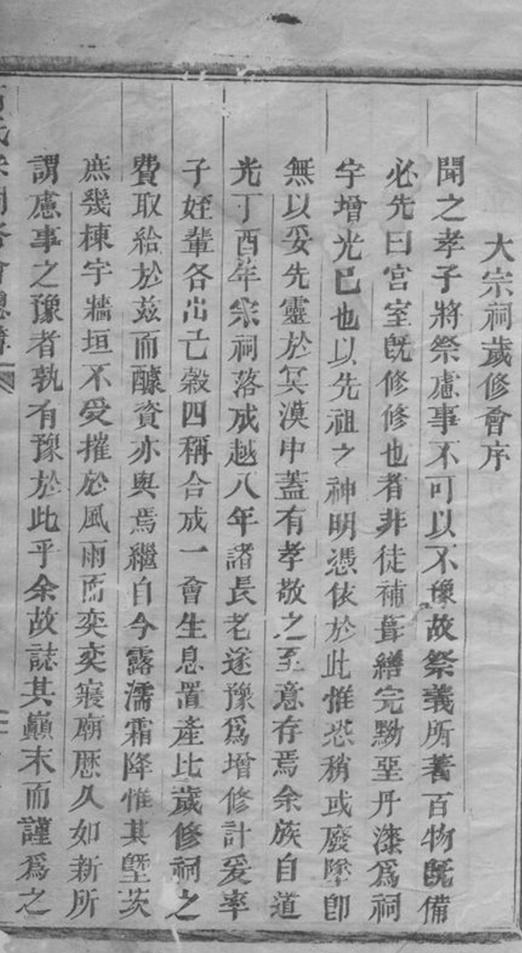 大宗祠歲修會序
聞之孝子將祭慮事不可以不豫故祭義所著百物旣備
必先曰宮室旣修修也者非徒補葺繕完黝堊丹漆爲祠
宇增光已也以先祖之神明憑依於此惟恐稍或廢墜卽
無以妥先靈於冥漠中蓋有孝敬之至意存焉余族自道
光丁酉年宗祠落成越八年諸長老遂豫爲增修計爰率
子姪輩各出己穀四稱合成一會生息置產比歲修祠之
費取給於茲而醵資亦與焉繼自今露濡霜降惟其墍茨
庶幾棟宇牆垣不受摧於風雨而奕奕寢廟歷久如新所
謂慮事之豫者孰有豫於此乎余故誌其巔末而謹爲之